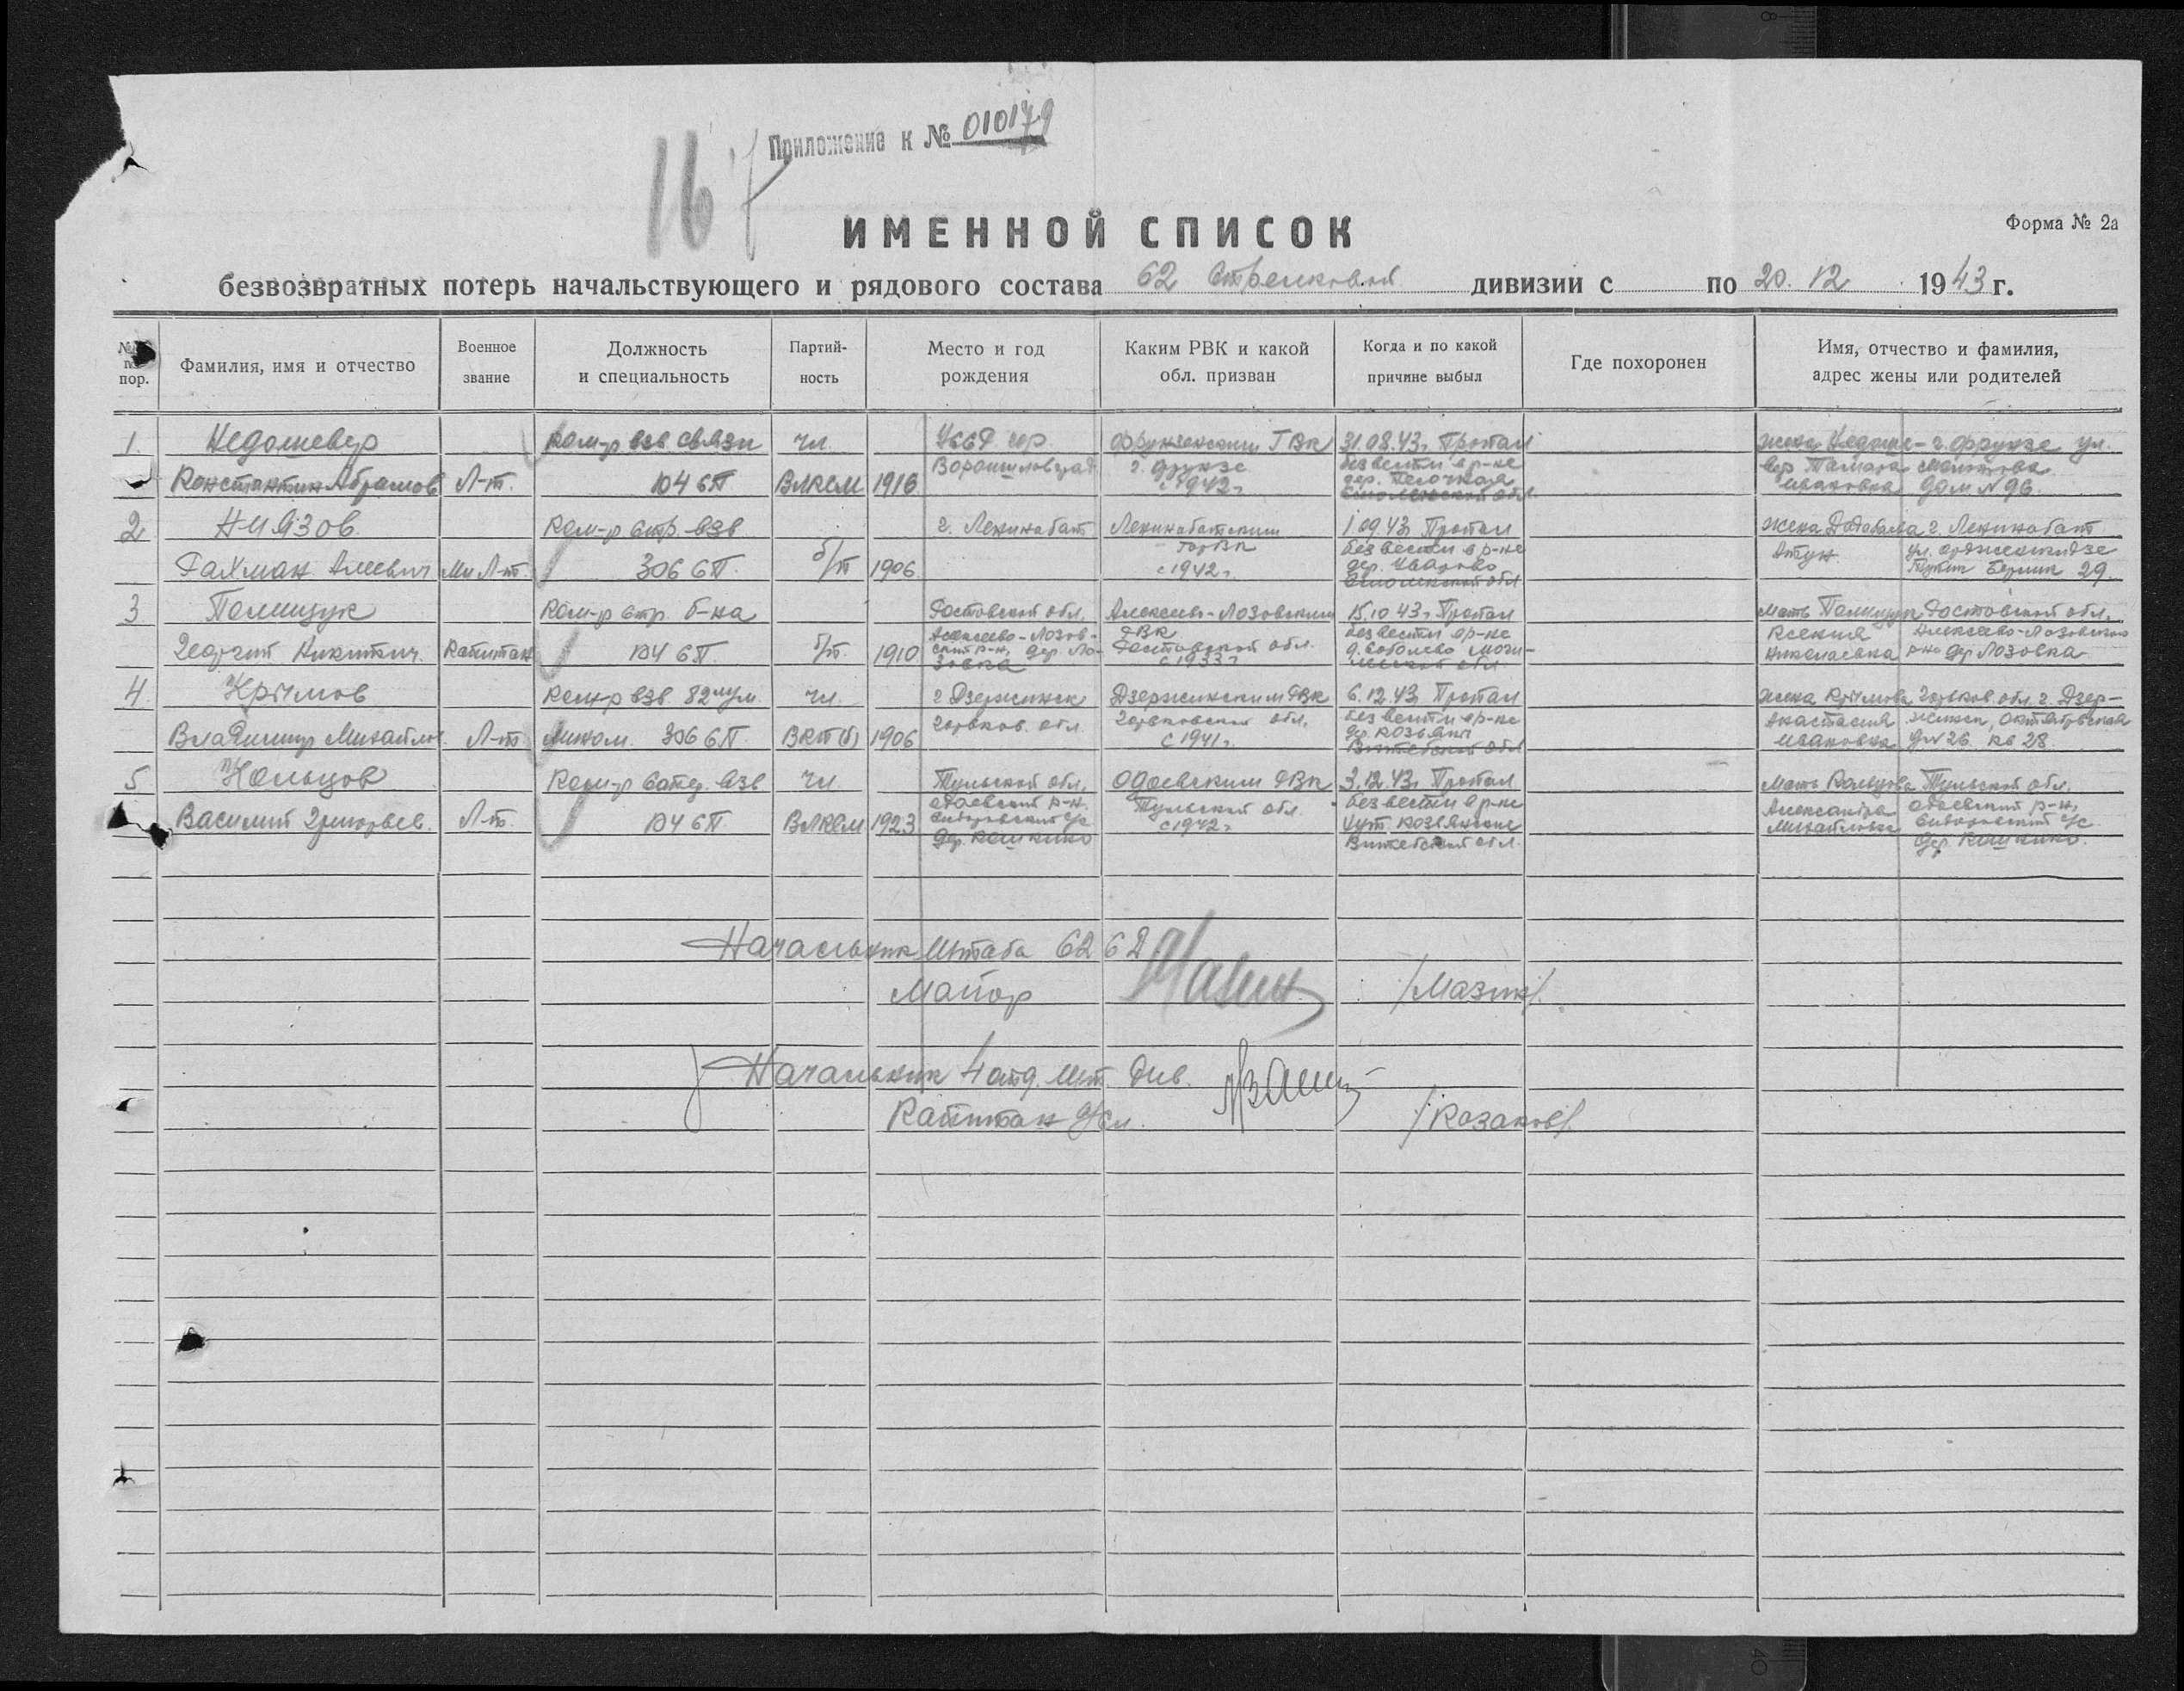 Приложение к № 010179
16
ИМЕННОЙ СПИСОК
Форма № 2а
безвозвратных потерь начальствующего и рядового состава 62 Стрелковой дивизии с по 20.12 1943 г.
№ по пор.
Фамилия, имя и отчество
Военное звание
Должность и специальность
Партий-ность
Место и год рождения
Каким РВК и какой обл. призван
Когда и по какой причине выбыл
Где похоронен
Имя, отчество и фамилия, адрес жены или родителей
1 Недошевер ком-р взв связи чл. УССР гор. Фрунзенским ГВК 31.08.43г Пропал жена Недоше- г. Фрунзе ул.
Константин Абрамов Л-т. 104 СП ВЛКСМ 1916 Ворошиловград г. Фрунзе без вести в р-не вер Тамара
с 1942г дер. Песочная Ивановна дом № 96
Смоленской обл
2 Ниязов ком-р стр. взв г. Ленинабат Ленинабатским 1.09.43г Пропал жена г. Ленинабат
Рахман Алиевич Мл Л-т. 306 СП б/п 1906 ГорВК без вести в р-не ул. Орджоникидзе
с 1942г дер. Уварово 29
Смоленской обл
3 Полищук ком-р стр. б-на Ростовской обл. Алексеево-Лозовским 15.10.43г Пропал мать Полищук Ростовской обл.
Георгий Никитич. капитан 104 СП б/п. 1910 Алексеево-Лозов- РВК без вести в р-не Ксения Алексеево-Лозовского
ский р-н, дер. Ло- Ростовской обл. д. Соболево Моги- Николаевна р-на дер Лозовка
зовка с 1933г левской обл
4 Крымов ком-р взв 82 мм. чл. г Дзержинск Дзержинским РВК 6.12.43 Пропал жена Крымова Горьков. обл. г. Дзер-
Владимир Михайлов. Л-т мином. 306 СП ВКП(б) 1906 Горьков. обл Горьковской обл. без вести в р-не Анастасия жинск, Октябрьская
с 1941г. дер. Козьяны Ивановна д № 26 кв 28.
Витебской обл
5 Кольцов ком-р сапер. взв чл. Тульской обл. Одоевским РВК 3.12.43г Пропал мать Кольцова Тульской обл.
Василий Григорьев. Л-т. 104 СП ВЛКСМ 1923 Одоевский р-н. Тульской обл. без вести в р-не Александра Одоевский р-н,
с/с с 1942г хут. Михайловна с/с
дер. Кошкино Витебской обл. дер. Кошкино.
Начальник Штаба 62 СД
Майор /Мазин/.
Начальник 4 отд. шт. див.
Капитан а/сл. /Козаков/.